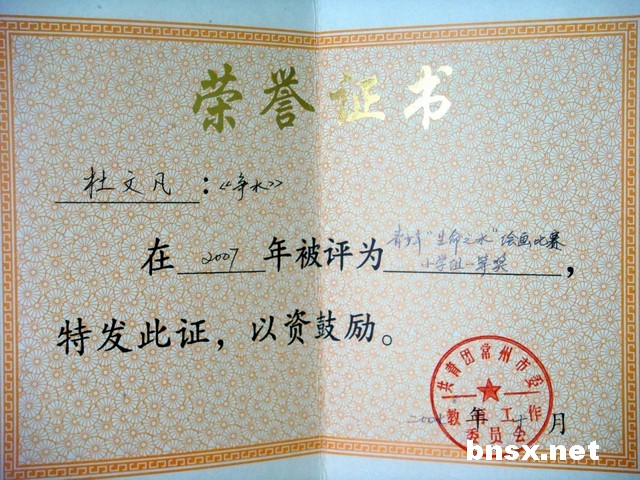 荣誉证书
杜文凡：《争水》
在 2007 年被评为 青少年"生命之水"绘画比赛
小学组一等奖，
特发此证，以资鼓励。
共青团常州市委
教 年 工作
委员会 月
bnsx.net